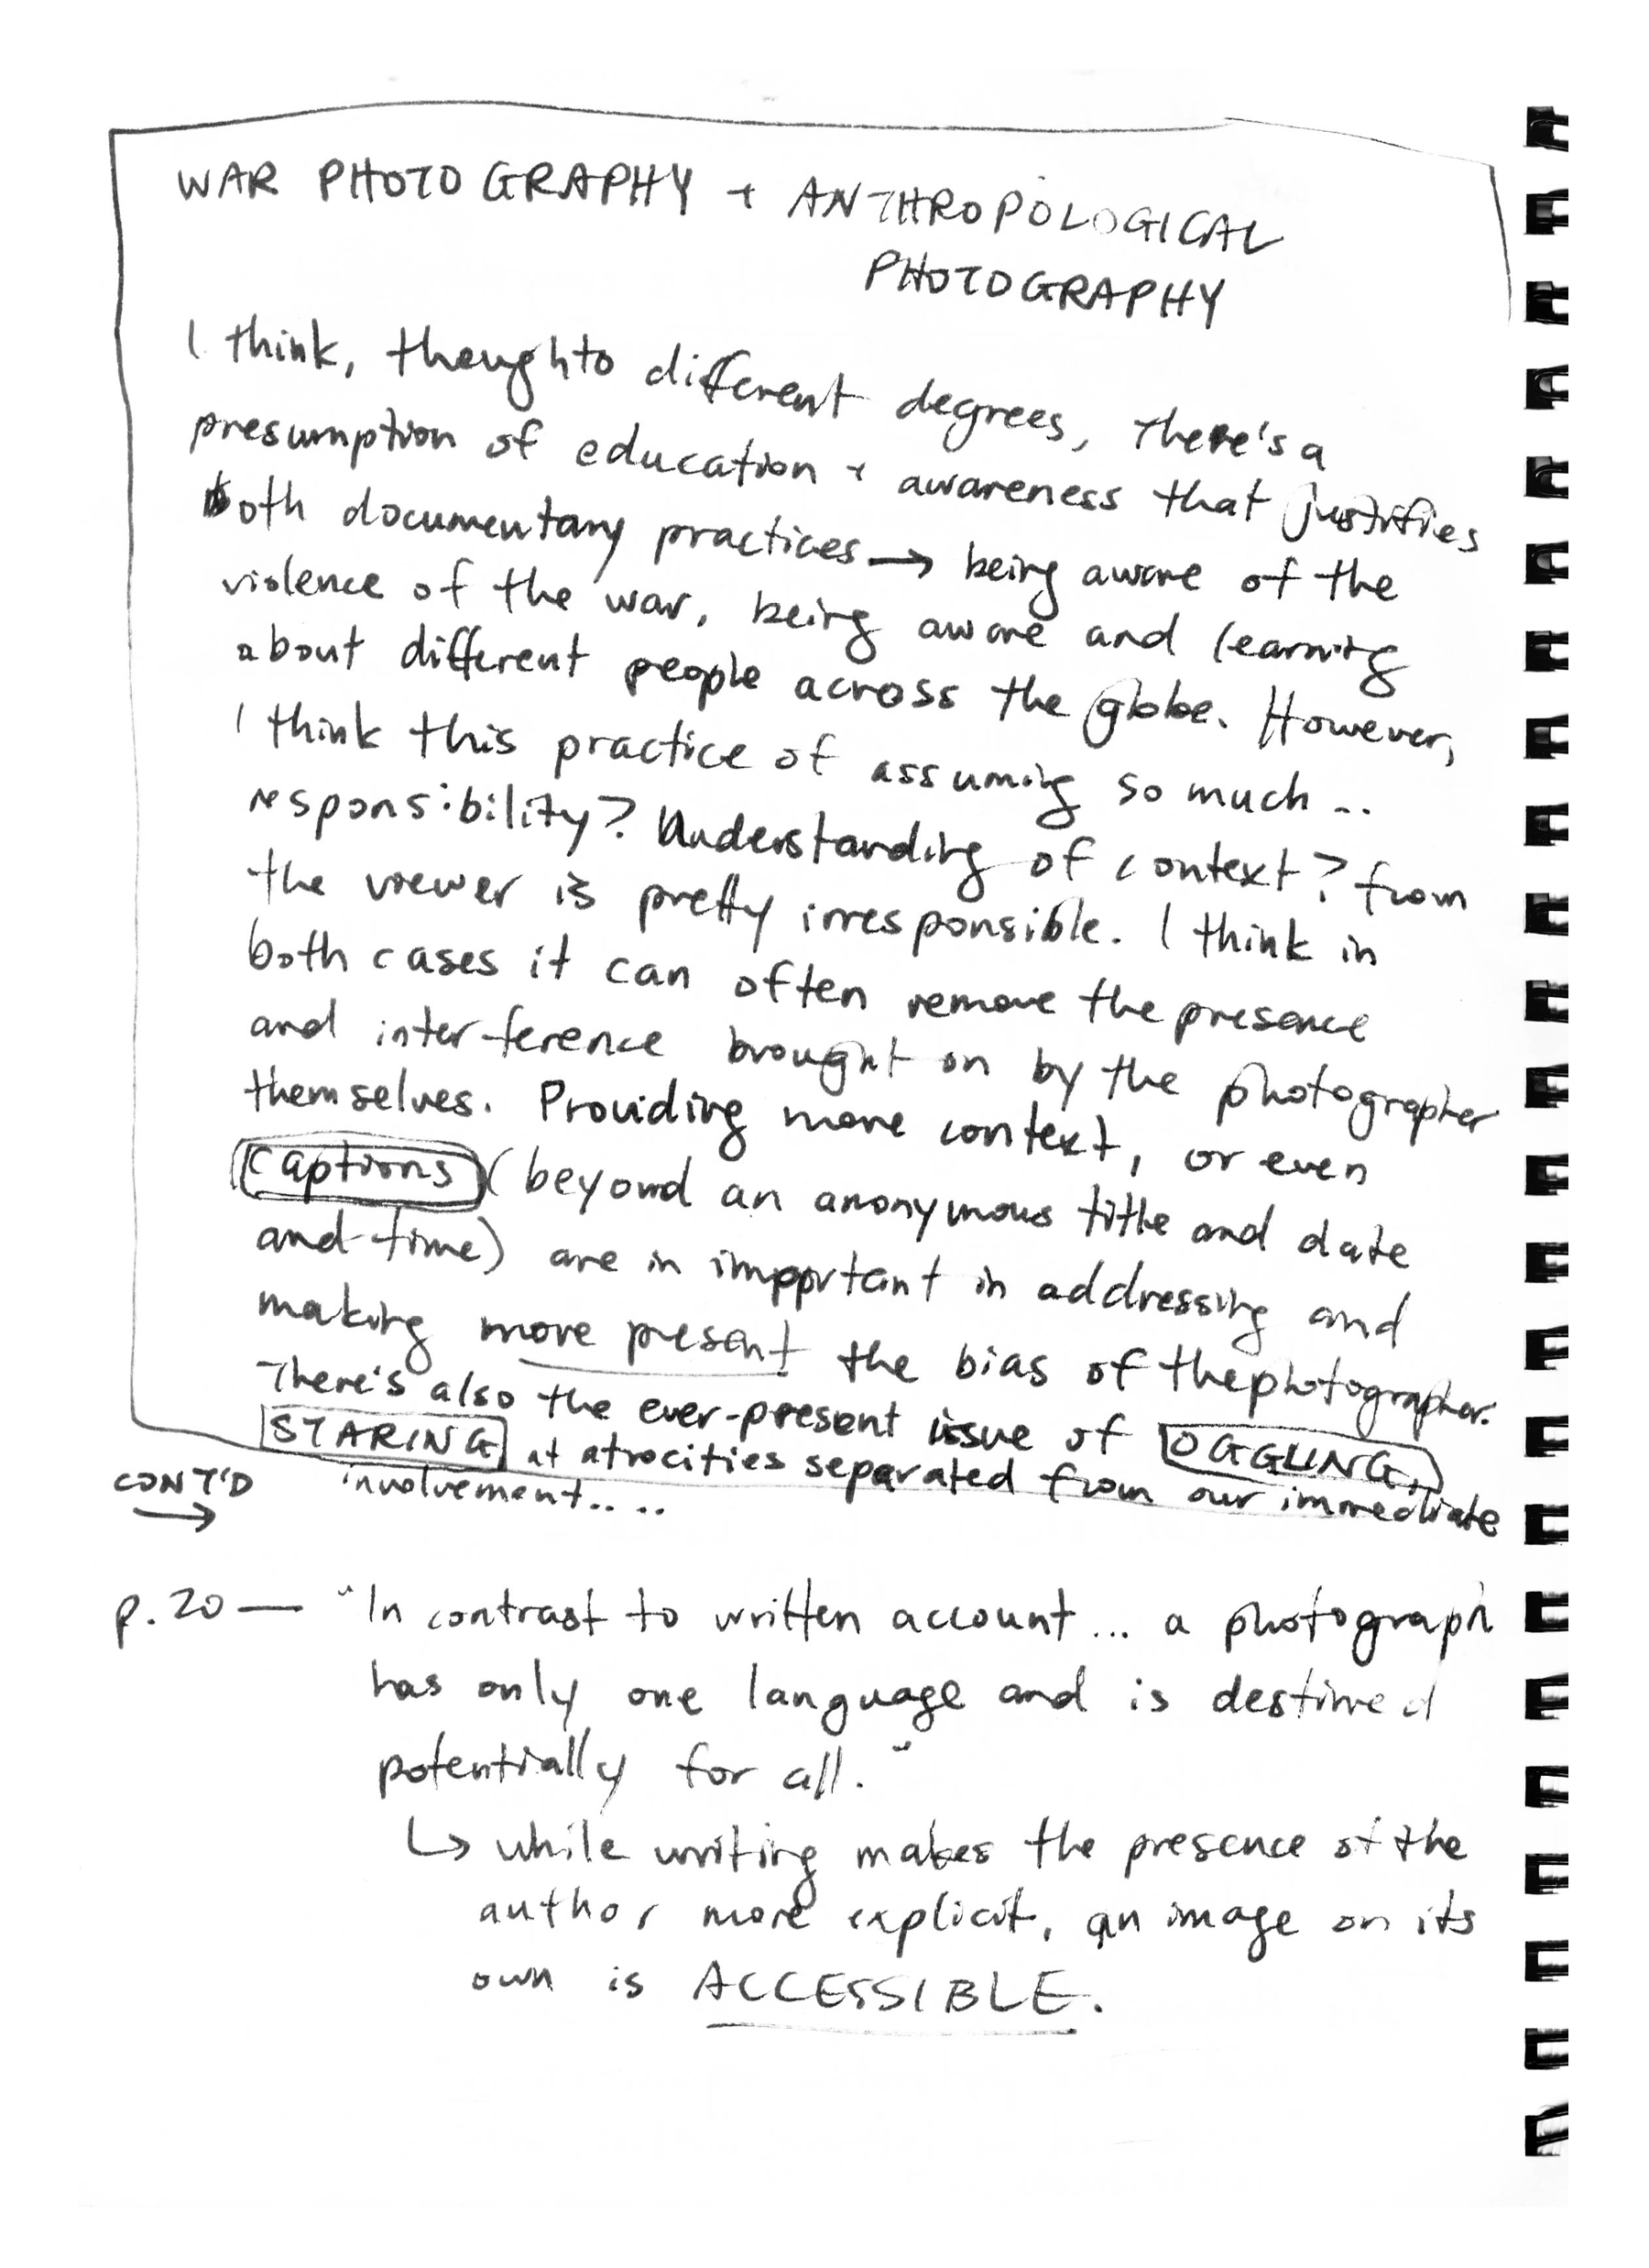 WAR PHOTOGRAPHY + ANTHROPOLOGICAL
PHOTOGRAPHY
I think, though to different degrees, there's a
presumption of education + awareness that justifies
both documentary practices → being aware of the
violence of the war, being aware and learning
about different people across the globe. However,
I think this practice of assuming so much ..
responsibility? Understanding of context? from
the viewer is pretty irresponsible. I think in
both cases it can often remove the presence
and interference brought on by the photographer
themselves. Providing more context, or even
captions (beyond an anonymous title and date
and time) are in important in addressing and
making more present the bias of the photographer.
There's also the ever-present issue of OGGLING,
STARING at atrocities separated from our immediate
involvement....
CONT'D
→
p. 20 — "In contrast to written account... a photograph
has only one language and is destined
potentially for all."
↳ while writing makes the presence of the
author more explicit, an image on its
own is ACCESSIBLE.